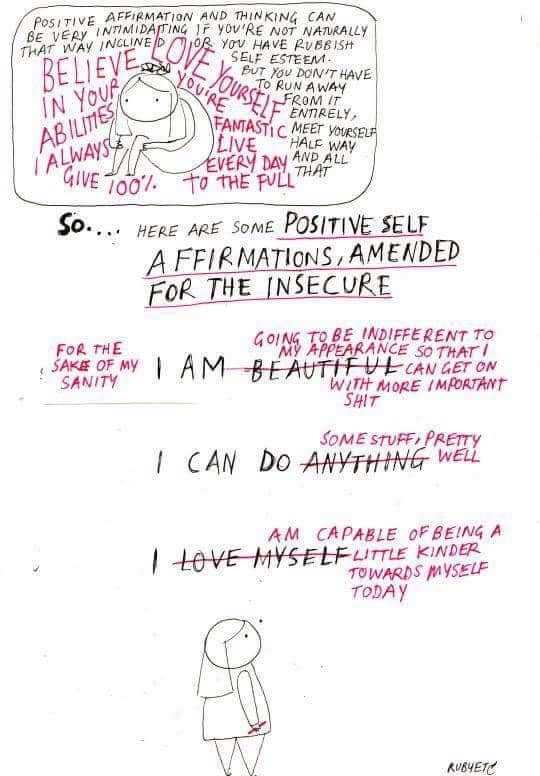 POSITIVE AFFIRMATION AND THINKING CAN
BE VERY INTIMIDATING IF YOU'RE NOT NATURALLY
THAT WAY INCLINED OR YOU HAVE RUBBISH
SELF ESTEEM.
BUT YOU DON'T HAVE
TO RUN AWAY
FROM IT
ENTIRELY,
MEET YOURSELF
HALF WAY
AND ALL
THAT
BELIEVE
IN YOUR
ABILITIES
I ALWAYS
GIVE 100%.
LOVE YOURSELF
YOU'RE
FANTASTIC
LIVE
EVERY DAY
TO THE FULL
SO.... HERE ARE SOME POSITIVE SELF
AFFIRMATIONS, AMENDED
FOR THE INSECURE
FOR THE
SAKE OF MY
SANITY
I AM BEAUTIFUL
GOING TO BE INDIFFERENT TO
MY APPEARANCE SO THAT I
CAN GET ON
WITH MORE IMPORTANT
SHIT
I CAN DO ANYTHING
SOME STUFF, PRETTY
WELL
I LOVE MYSELF
AM CAPABLE OF BEING A
LITTLE KINDER
TOWARDS MYSELF
TODAY
RUBYETC